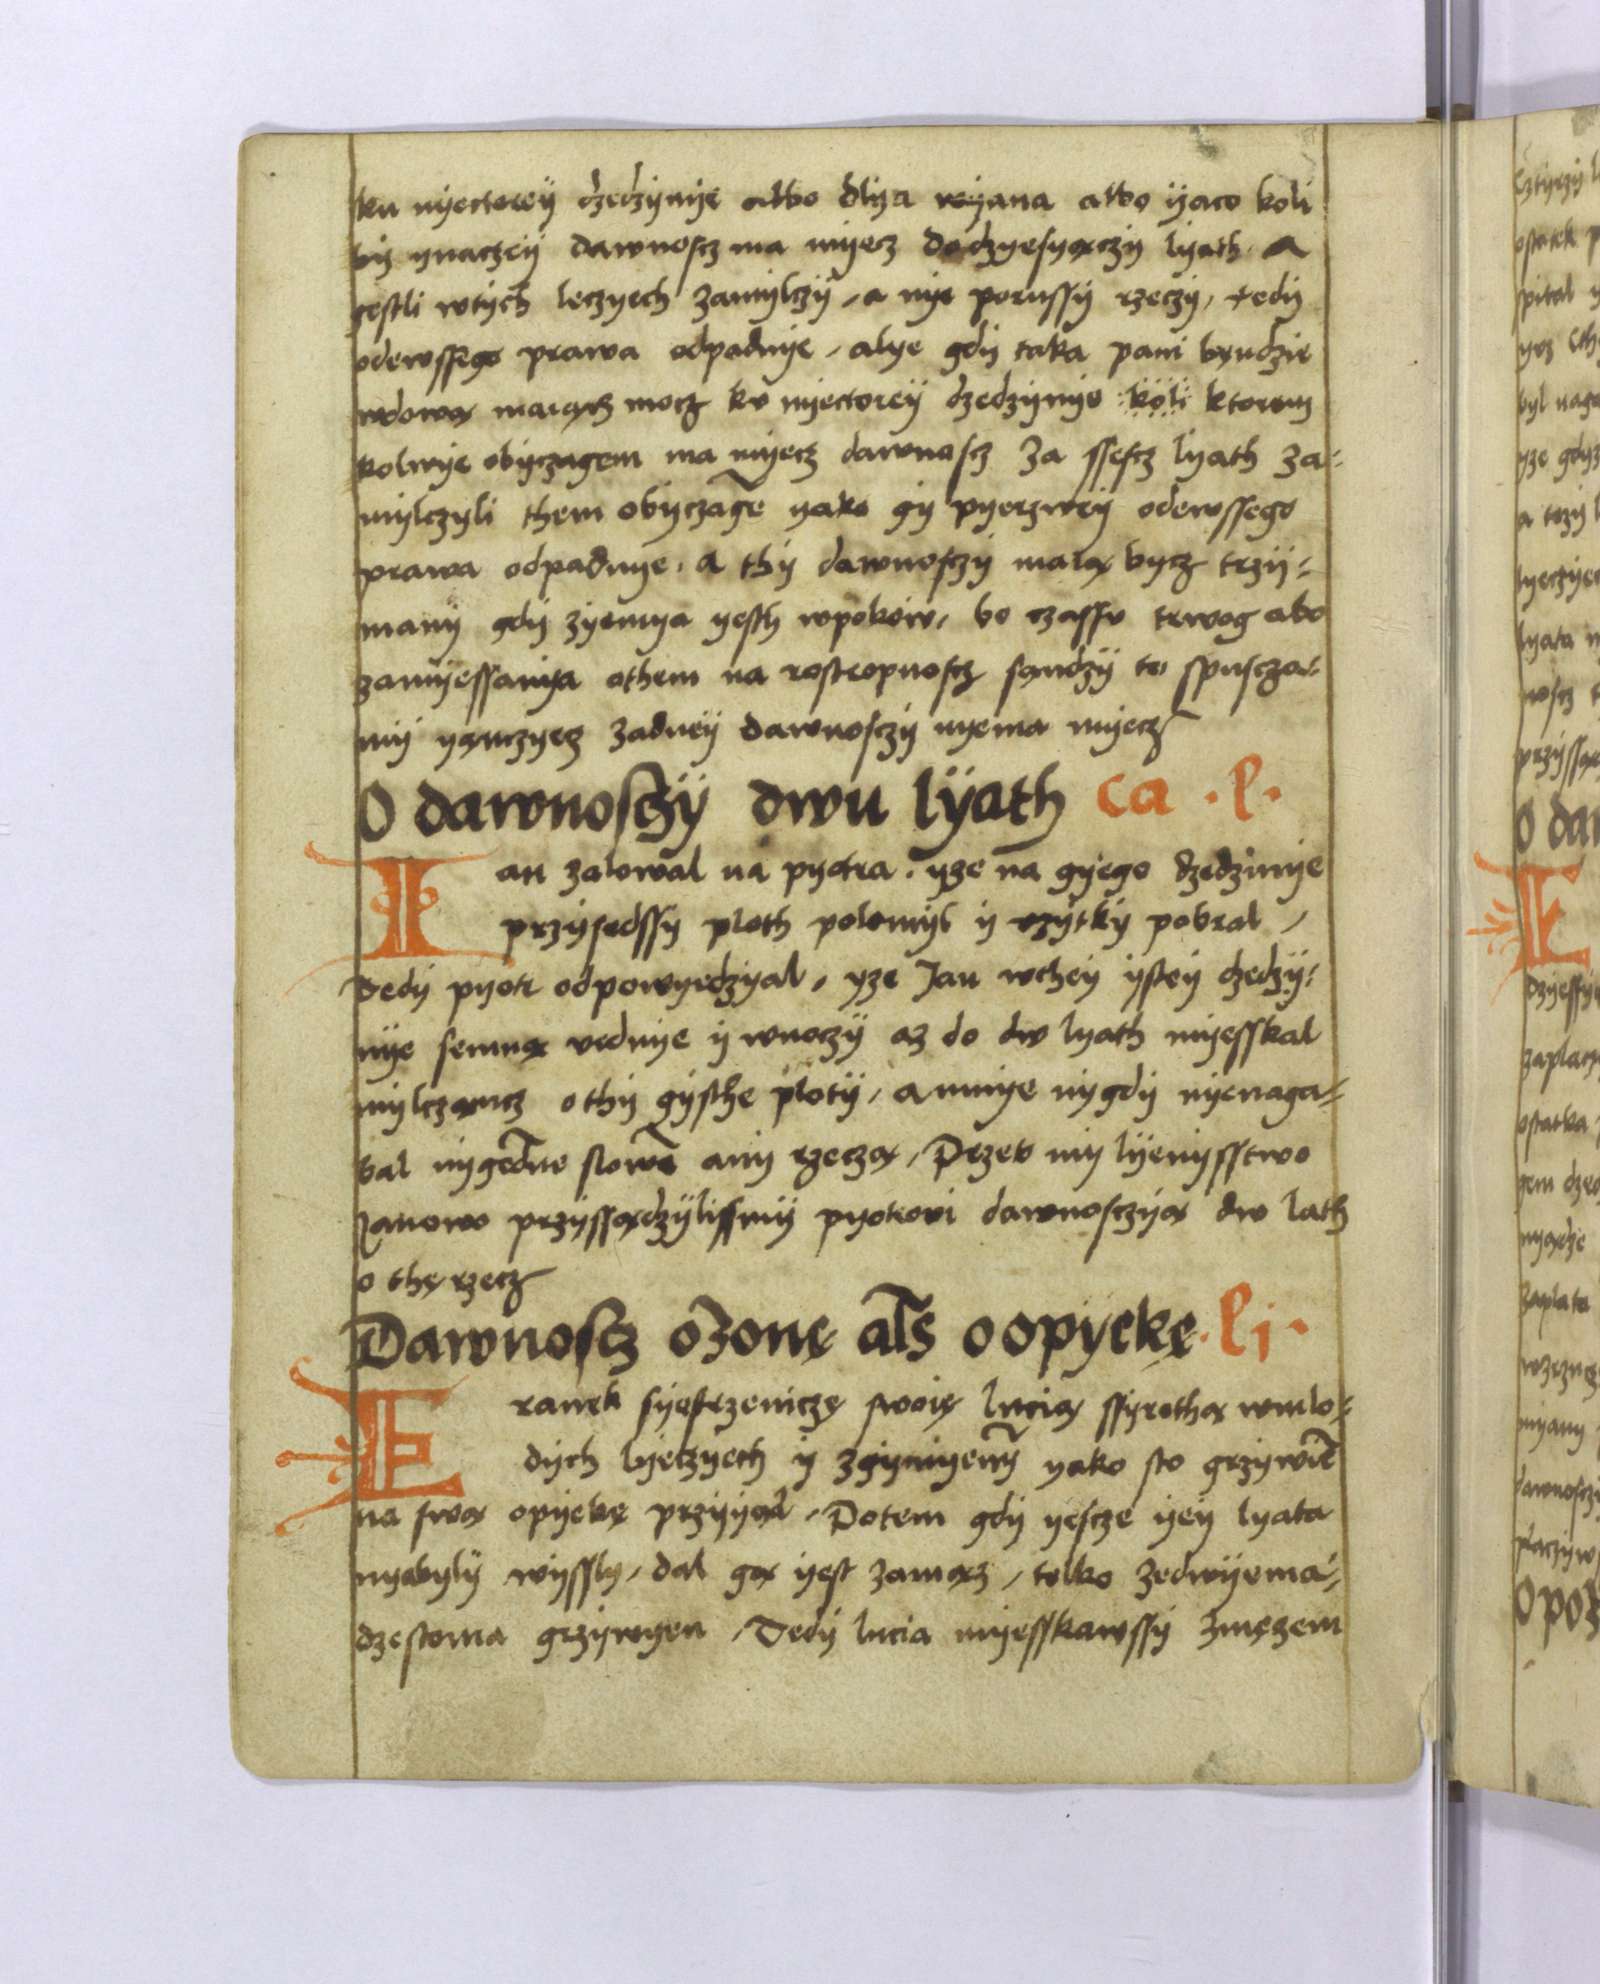 ku nyectorey dzedzynye albo dlya wyana albo yaco koli
by ynaczey dawnoscz ma myecz do dzyesyączy lyath. a
gestli wtych leczyech zamylczy, a nye porussy rzeczy, tedy
odewssego prawa odpadnye, alye gdy taka pani bęndzie
wdową maiącz mocz ku nyectorey dzedzynye koli ktorem
kolwye obyczagem ma myecz dawnoscz za ssescz lyath za=
mylczyli them obyczagē yako gy pyerzwey odewssego
prawa odpadnye. a thy dawnosczy maią bycz trzy=
many gdy zyemya yesth wpokow, bo czassu trwog abo
zamyessanya othem na rostropnoscz sąndzy to spuscza=
my yąnczyecz zadney dawnosczy nyema myecz
O dawnosczy dwu lyath ca . l .
Ian zalowal na pyotra . yze na gyego dzedzinye
przysedssy ploth polomyl y vzytky pobral ,
Tedy pyotr odpowyedzyal, yze Jan wthey ystey dzedzy=
nye semną vednye y wnoczy az do dw lyath myesskal
mylcząncz o thy gysthe ploty, a mnye nygdy nyenaga=
bal nygednē slowē any rzeczą, Przeto my lyenysstwo
Janowo przyssądzylissmy pyotrovi dawnosczyą dw lath
o thę rzecz
Dawnoscz o zonę als o opyekę . li .
Franek syestrzeniczę swoię lucią ssyrothą wmlo=
dych lyeczyech y zgymyenỹ yako sto grzywiē
na swą opyekę przyyąl, Potem gdy yescze yey lyata
nyebyly wyssly, dal gą yest zamąz, telko zedwyema=
dzestoma grzywyen, Tedy lucia myesskawssy zmęzem